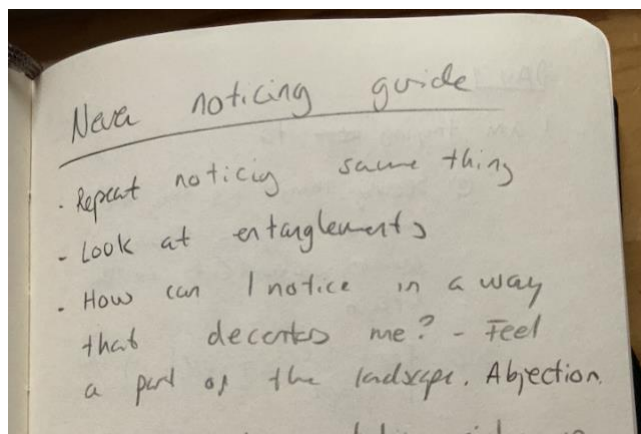 Neva noticing guide
· Repeat noticing same thing
- Look at entanglements
· How can I notice in a way
that decentres me? - Feel
a part of the landscape. Abjection.